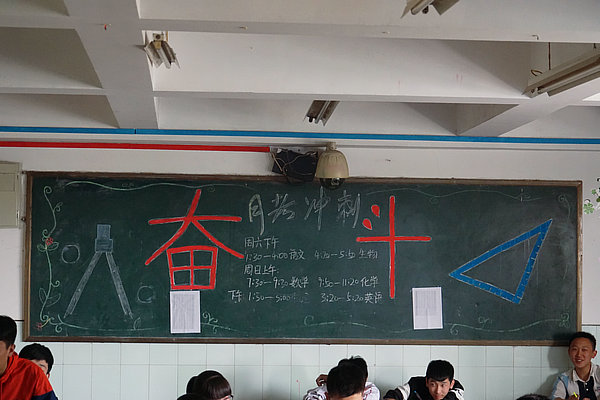 月考冲刺
奋斗
周六下午
1:30-4:00语文 4:20-5:50生物
周日上午
7:30-9:30数学 9:50-11:20化学
下午 1:30-3:00 3:20-5:20英语